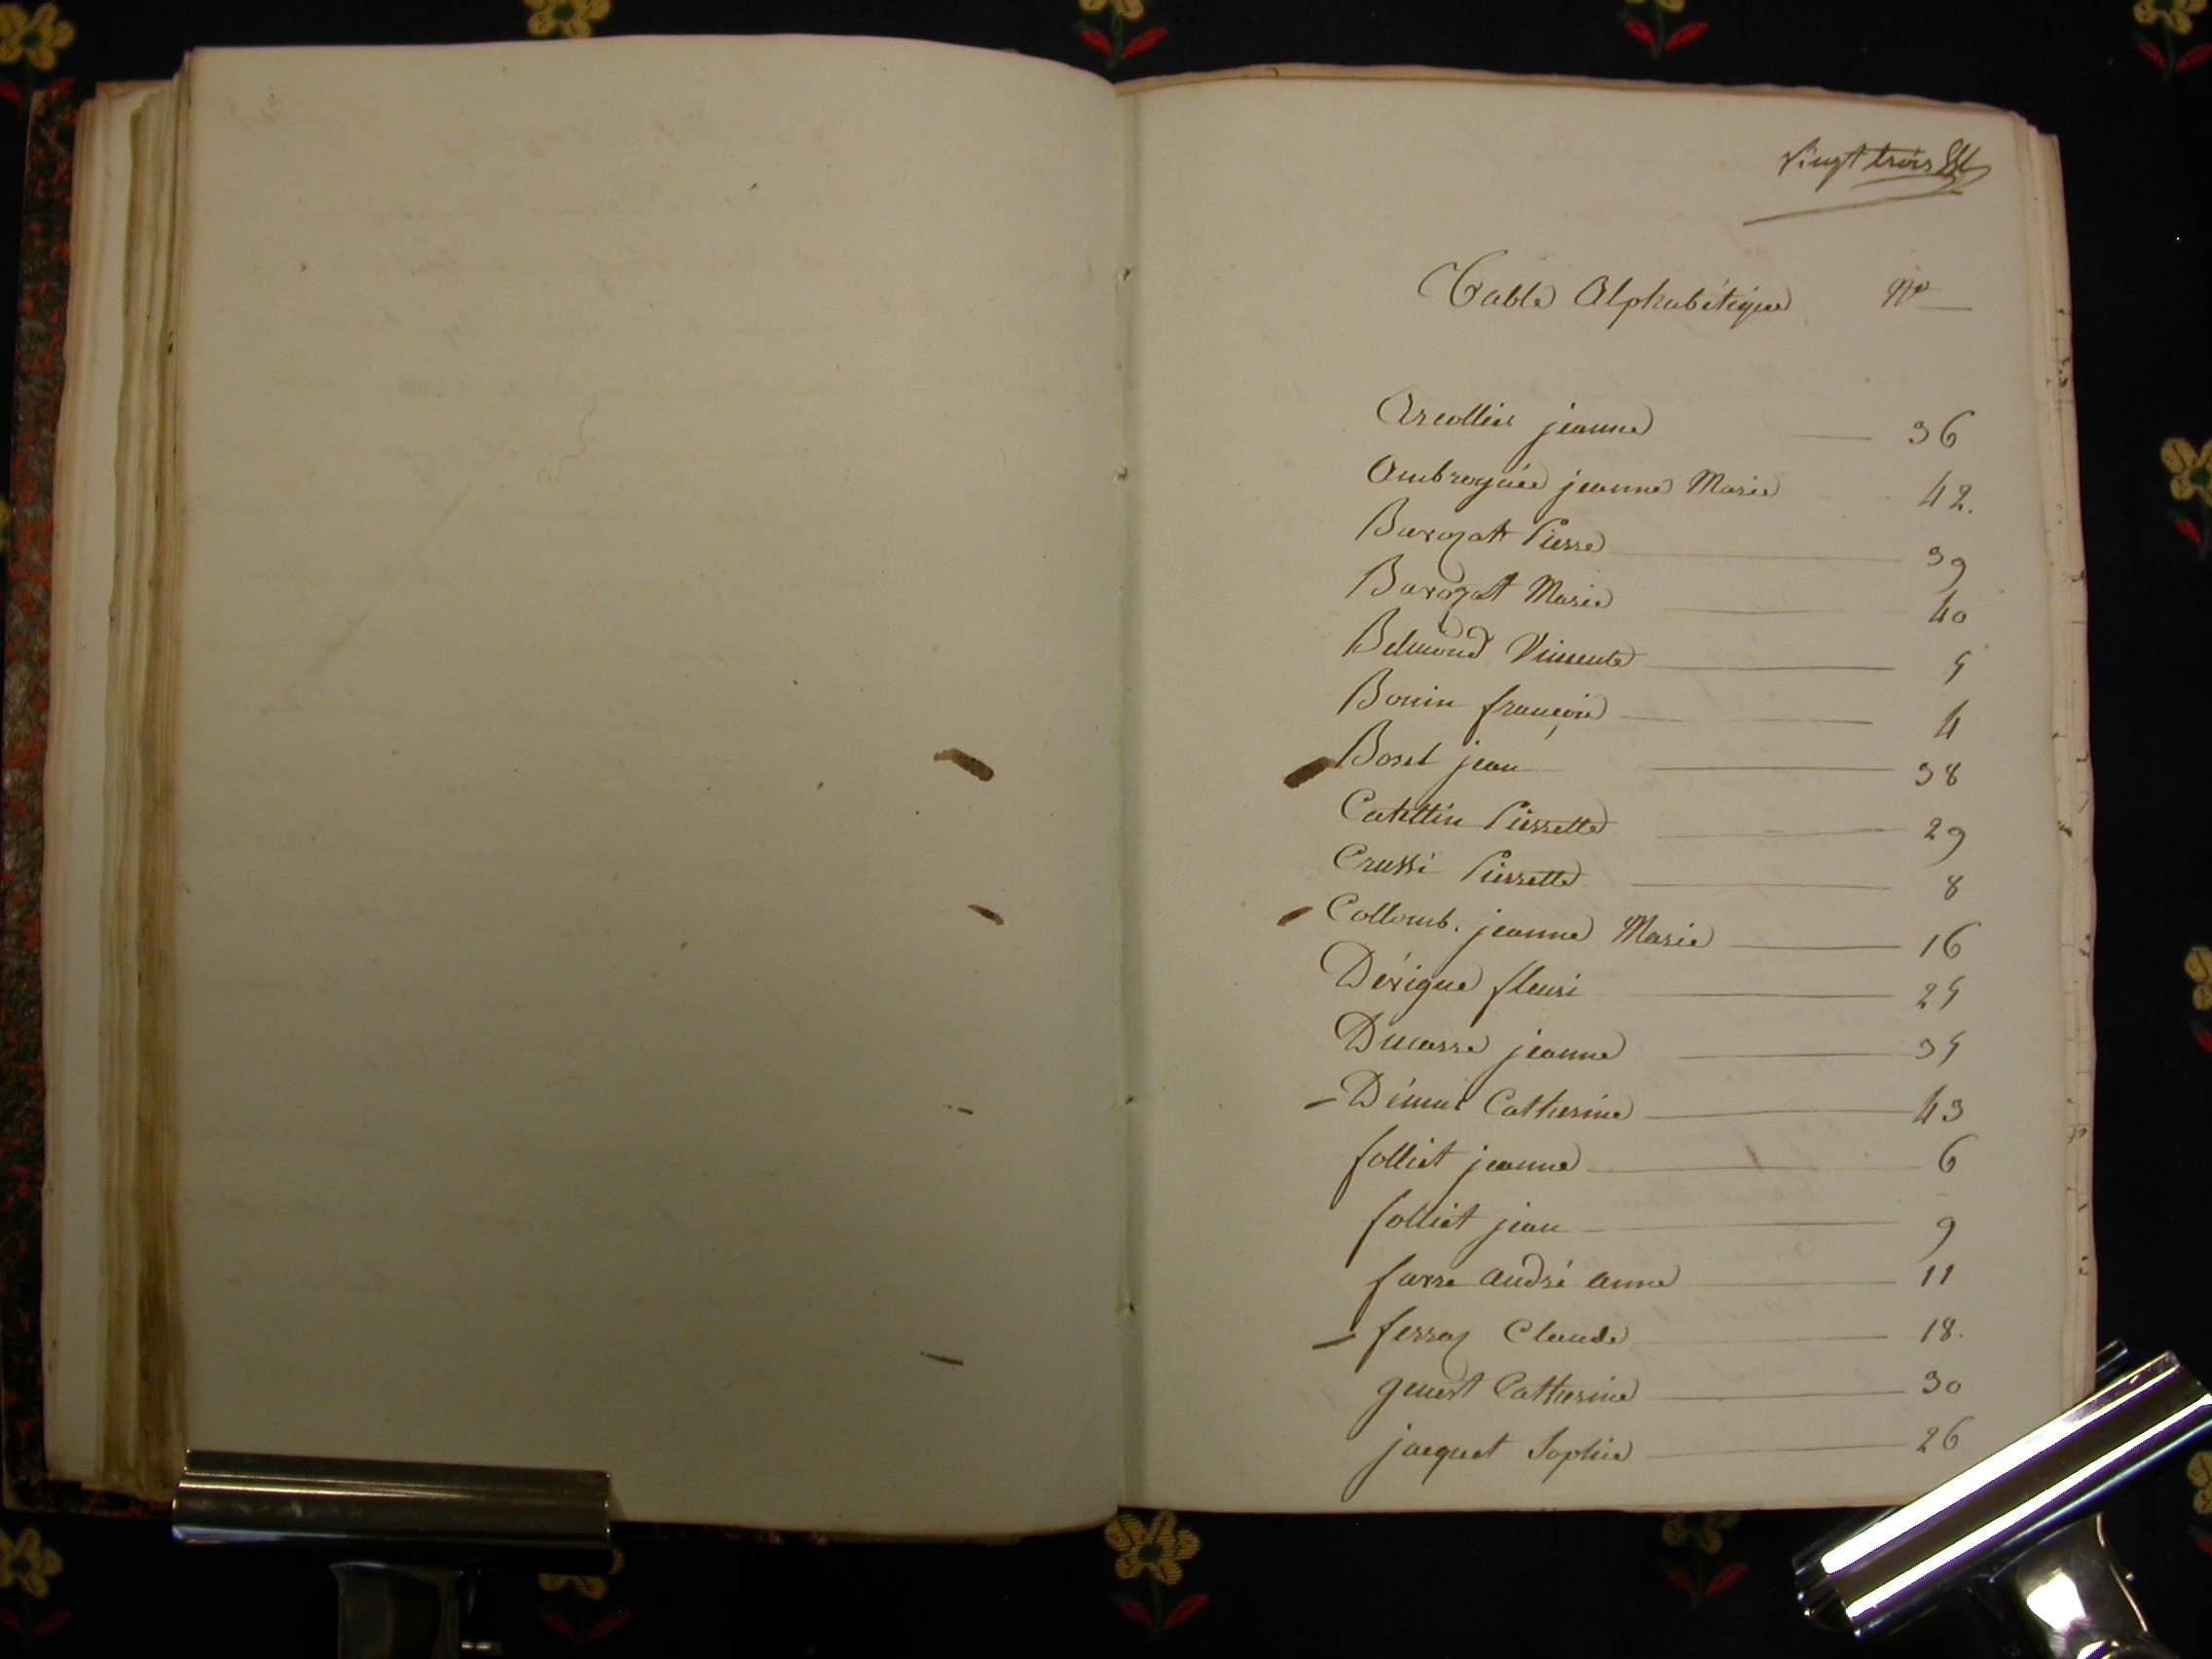 Vingt trois
Table Alphabétique N°
Arcollier jeanne 36
jeanne Marie 42.
Barozat Pierre 39
Barozat Marie 40
Belmond Vincente 5
Bonin françois 4
Borel jean 38
Catettin Pierrette 29
Crussi Pierrette 8
Collomb. jeanne Marie 16
Dérigue fleuri 25
Ducasse jeanne 35
Catherine 43
folliet jeanne 6
folliet jean 9
farre andré anne 11
ferraz Claude 18.
genest Catherine 30
jacquet Sophie 26